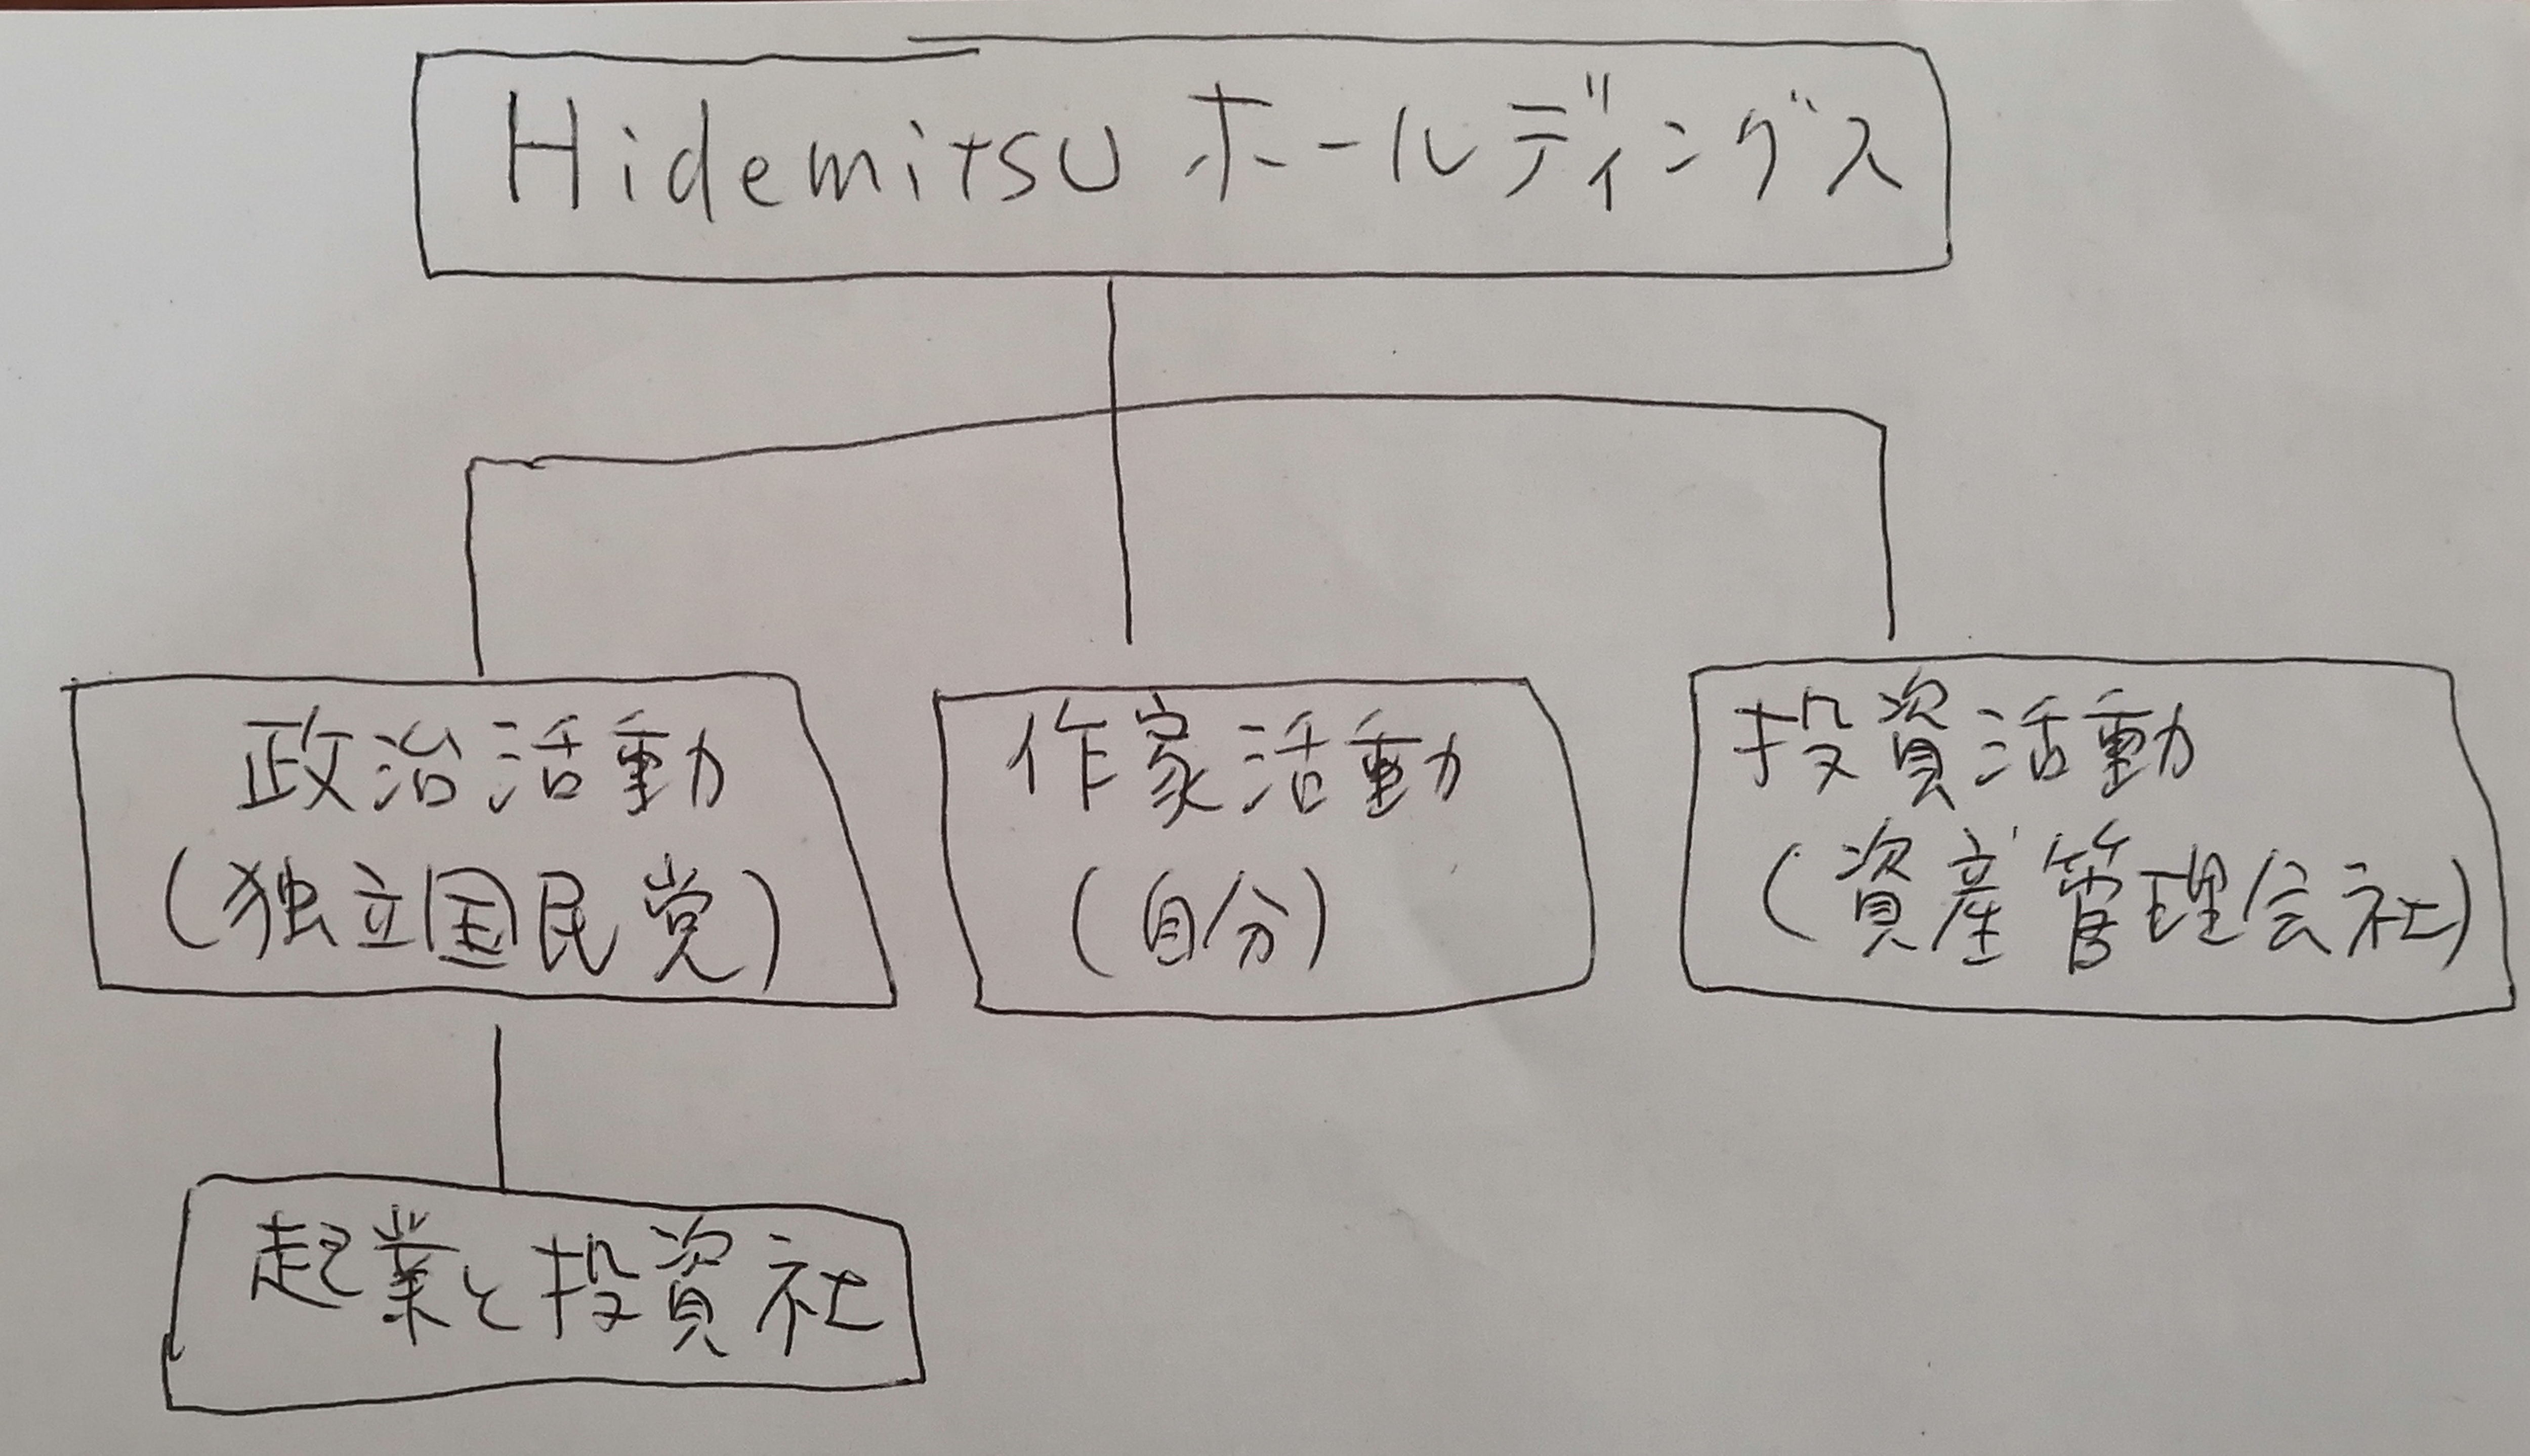 Hidemitsu ホールディングス
政治活動
(独立国民党)
作家活動
(自分)
投資活動
(資産管理会社)
起業と投資社